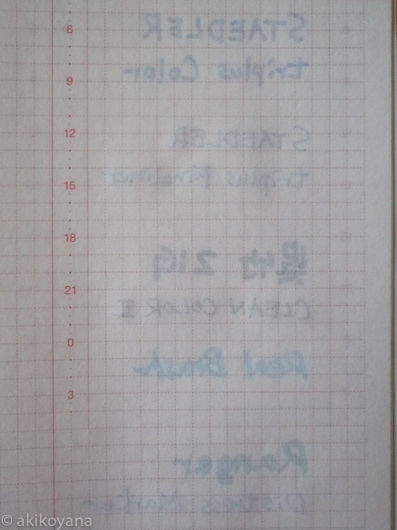 6
STAEDLER
triplus Color
9
12
STAEDLER
triplus Fineliner
15
18
呉竹 ZIG
21
CLEAN COLOR II
0
Real Brush
3
Ranger
Distress Marker
© akikoyana